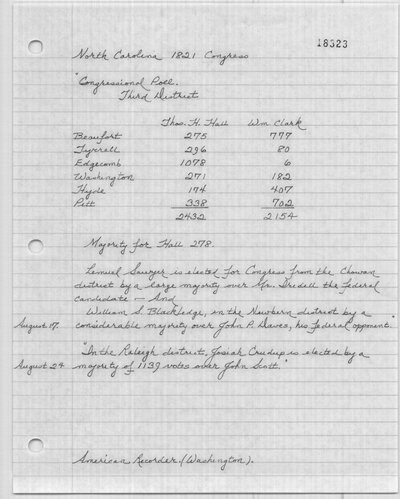 18323
North Carolina 1821 Congress
"Congressional Poll.
Third District
Thos. H. Hall Wm Clark
Beaufort 275 777
Tyrrell 296 80
Edgecomb 1078 6
Washington 271 182
Hyde 174 407
Pitt 338 702
2432 2154
Majority for Hall 278.
Lemuel Sawyer is elected for Congress from the Chowan
district by a large majority over Mr. Iredell the Federal
candidate — And
William S. Blackledge, in the Newbern district by a
August 17. considerable majority over John P. Daves, his Federal opponent."
"In the Raleigh district, Josiah Crudup is elected by a
August 24 majority of 1139 votes over John Scott."
American Recorder (Washington).